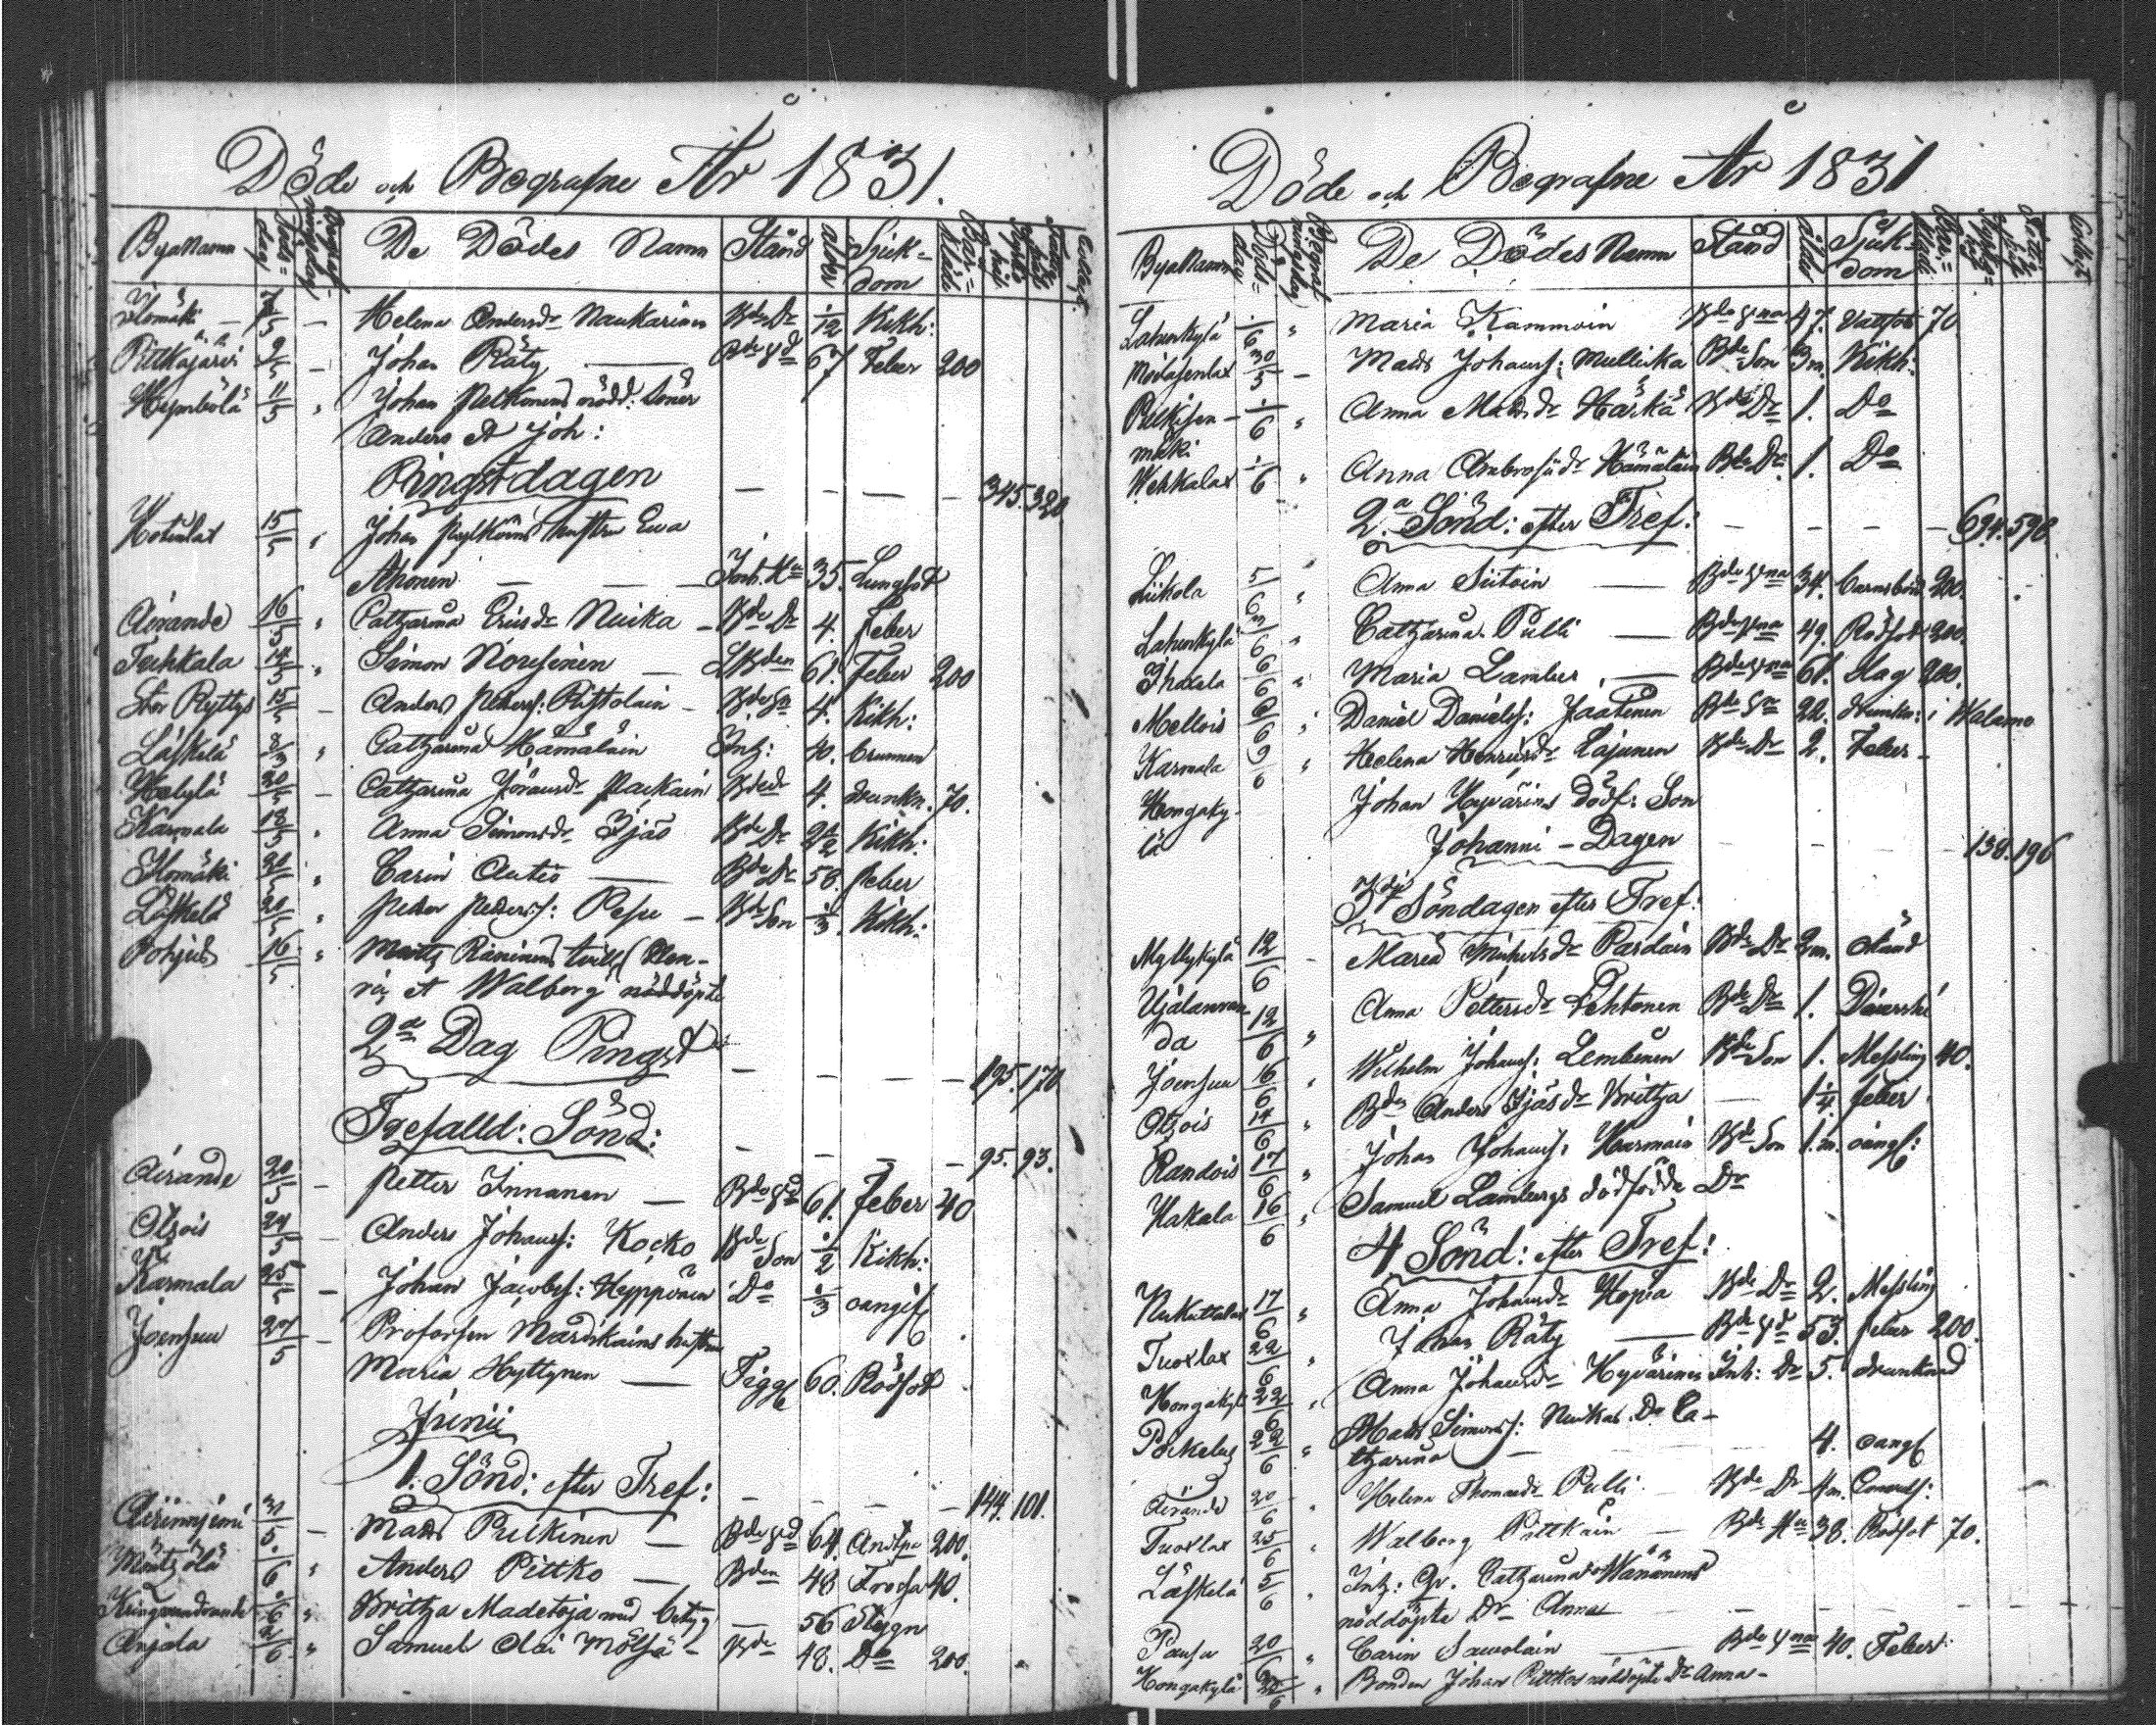 Döde och Begrafne År 1831.
ByaNamn Döds- dag Begrafningsdag De Dödes Namn Stånd ålder Sjuk- dom
Ilomäki 7/5 — Helena Andersdr Naukarinen Bde Dr 1/12 Kikh:
Pitkäjärvi 9/5 — Johan Räty — Bde Gd 67 Feber 200
Hymbölä 11/5 " Johan Pelkonens nödd: Söner
Anders et Joh:
Pingstdagen — — — — 345. 320
Hotinlax 15/5 " Johan Pylköins hustru Eva
Ahonen — — Inh. Hu 35. Lungsot
Airande 16/5 " Catharina Ericsdr Nuika — Bde Dr 4. Feber
Tuhkala 14/5 " Simon Nousiainen — LBden 61. Feber 200
Stor Ryttys 15/5 — Anders Petters: Ristolain — Bde Sn 4. Kikh:
Läskelä 8/5 " Catharina Hämäläin Inh: 40. brunnen
Helylä 20/5 — Catharina Göransdr Paekain Bdedr 4. drunkn. 70.
Karmala 18/5 " Anna Simonsdr Ijäs Bde Dr 2 1/2 Kikh:
Ilomäki 20/5 " Carin Autio — Bde Dr 58. feber
Läskelä 20/5 " Peter Peters: Pesu — Bde Son 1/3. Kikh:
Pohjus 16/5 " Matts Räninens tvill: Hen-
ric et Walborg nöddöpte
2a Dag Pingst — — — — 195. 170
Trefalld: Sönd: — — — — 95. 93.
Airande 20/5 — Petter Innanen — Bde Gd 61. feber 40
Otsois 24/5 — Anders Johans: Kocko Bde Son 1/2 Kikh:
Karmala 25/5 — Johan Jacobs: Heyppönen Do 1/3 oangif
Joensuu 27/5 — Proforsen Mardikains hustru
Maria Hyttynen — Tigg 60. Rödsot
Junii
1. Sönd: efter Tref: — — — — 144. 101.
Airinniemi 31/5. — Mats Pulkinen — Bde Gd 64. Andtpa 200.
Mäntzölä /6 " Anders Pittko — Bden 48 Frossa 40.
Kringvandrande /6 " Brittza Madetoja med betyg — 56 Styggn
Anjala 2/6 " Samuel Olai Mölsä — Bde 48. Do 200.
Döde och Begrafne År 1831
ByaNamn Döds- dag Begrafningsdag De Dödes Namn Stånd ålder Sjuk- dom
Lahenkylä 1/6 " Maria Kammoin Bde Gna 47. Vattsot 70
Meidasenlax 30/5 — Mats Johans: Mullikka Bde Son 3m. Kikh:
Pelkisen- 1/6 " Anna Matsdr Härkä Bde Dr 1. Do
mäki
Wehkalax 1/6 " Anna Ambrosiidr Hämäläin Bde Dr 1. Do
2.a Sönd: efter Tref: — — — — 694. 590.
Liikola 5/6 " Anna Siitoin — Bde Gna 34. barnsbörd 200.
Lahenkylä 3/6 " Catharina Pulli — Bde Gna 49. Rödsot 200.
Ihaxela 6/6 " Maria Lamber — Bde Gna 61. slag 200.
Mellois 6/6 " Daniel Daniels: Jaatinen Bde Sn 22. drunkn: i Walamo
Karmala 9/6 " Helena Henricsdr Lajunen Bde Dr 2. Feber —
Hongaky- Johan Hyvärins dödf: Son
lä Johanni-Dagen — — — — 138. 196
3dje Söndagen efter Tref:
Myllykylä 12/6 — Maria Michelsdr Pardain Bde Dr 2m. okänd
Ujalanran- Anna Pettersdr Lehtonen Bde Dr 1. Diarrhé
da 12/6 "
Joensuu 16/6 " Wilhelm Johans: Lembinen Bde Son 1. Messling 40.
Otsois 14/6 " Bden Anders Ijäs dr Brittza — 1 1/4 feber
Randois 17/6 " Johan Johans: Harmain Bde Son 1.m. oangf:
Hakala 16/6 " Samuel Lambergs dödfödda Dr
4 Sönd: efter Tref:
Kukuttalax 17/6 " Anna Johansdr Hopia Bde Dr 2. Messling
Tuoxlax 22/6 " Johan Räty — Bde Gd 53. feber 200.
Hongakylä 22/6 " Anna Johansdr Hyvärinen Inh: Dr 5. drunknad
Pöckelys 22/6 " Mats Simons: Nuikas Dr Ca-
tharina — 4. oangf
Airande 20/6 " Helena Thomasdr Pulli — Bde Dr 4m. Convuls:
Tuoxlax 25/6 " Walborg Pittkäin — Bde Hu 38. Rödsot 70.
Läskelä 5/6 " Inh: Qv. Catharina Wänänens
nöddöpte Dr Anna — — — —
Pausu 20/6 " Carin Sawolain — Bde Gna 40. Feber
Hongakylä 30/6 " Bonden Johan Pittkos nöddöpte Dr Anna —